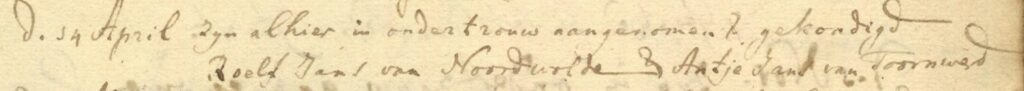 d. 14 April zyn alhier in ondertrouw aangenomen & gekondigd
Roelf Jans van Noordwolde & Antje Jans van Toornwerd